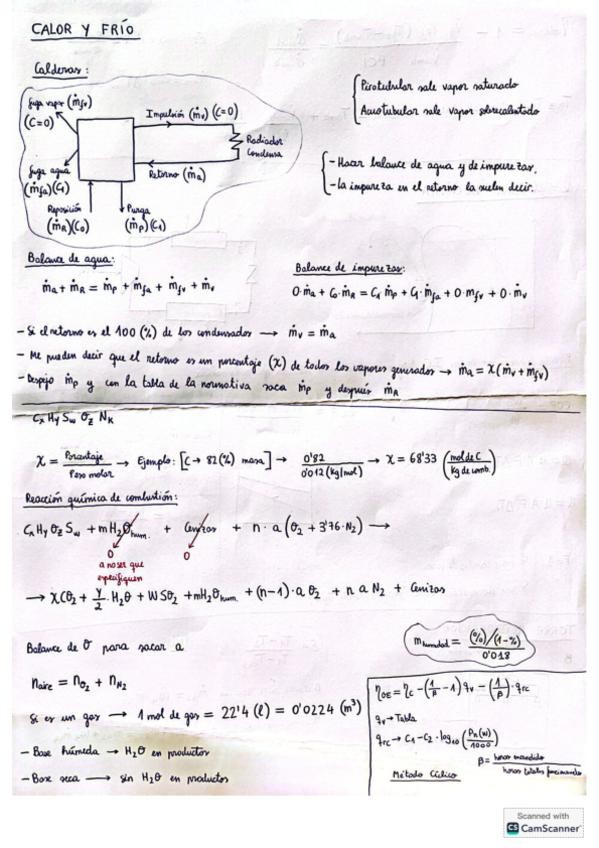 CALOR Y FRÍO
Calderas:
fuga vapor (ṁfv)
(C=0)
Impulsión (ṁv) (C=0)
Radiador
Condensa
fuga agua
(ṁfa)(C1)
Retorno (ṁa)
Reposición
(ṁR)(C0)
Purga
(ṁp)(C1)
Pirotubular sale vapor saturado
Acuotubular sale vapor sobrecalentado
- Hacer balance de agua y de impurezas.
- La impureza en el retorno la suelen decir.
Balance de agua:
ṁa + ṁR = ṁp + ṁfa + ṁfv + ṁv
Balance de impurezas:
0·ṁa + C0·ṁR = C1 ṁp + C1·ṁfa + 0·ṁfv + 0·ṁv
- Si el retorno es el 100 (%) de los condensados → ṁv = ṁa
- Me pueden decir que el retorno es un porcentaje (X) de todos los vapores generados → ṁa = X(ṁv + ṁfv)
- Despejo ṁp y con la tabla de la normativa saca ṁp y después ṁR
Cx Hy Sw Oz Nk
X = Porcentaje / Peso molar → Ejemplo: [C → 82(%) masa] → 0'82 / 0'012 (kg/mol) → X = 68'33 (mol de C / kg de comb.)
Reacción química de combustión:
Cx Hy Oz Sw + mH2O hum. + Cenizas + n · a (O2 + 3'76·N2) →
0
0
a no ser que
especifiquen
→ XCO2 + y/2 · H2O + WSO2 + mH2O hum + (n-1)·a O2 + n a N2 + Cenizas
Balance de O para sacar a
m humedad = (%)/(1-%) / 0'018
n aire = nO2 + nN2
Si es un gas → 1 mol de gas = 22'4 (l) = 0'0224 (m³)
- Base húmeda → H2O en productos
- Base seca → sin H2O en productos
ηOE = ηC - (1/β - 1) qv - (1/β) · qrc
qv → Tabla
qrc → C1 - C2 · log10 (Pn(W) / 1000)
β = horas encendido / horas totales funcionando
Método Cíclico
Scanned with
CS CamScanner